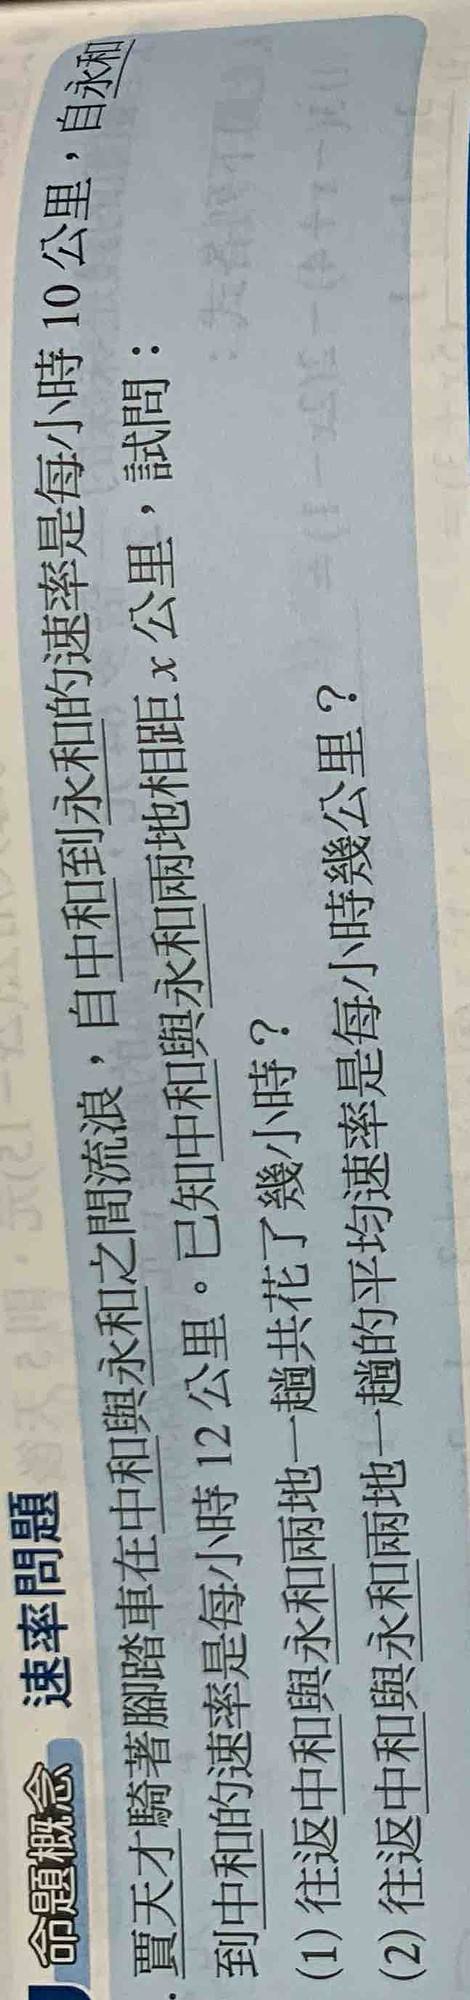 命題概念 速率問題
賈天才騎著腳踏車在中和與永和之間流浪，自中和到永和的速率是每小時 10 公里，自永和
到中和的速率是每小時 12 公里。已知中和與永和兩地相距 x 公里，試問：
(1) 往返中和與永和兩地一趟共花了幾小時？
(2) 往返中和與永和兩地一趟的平均速率是每小時幾公里？